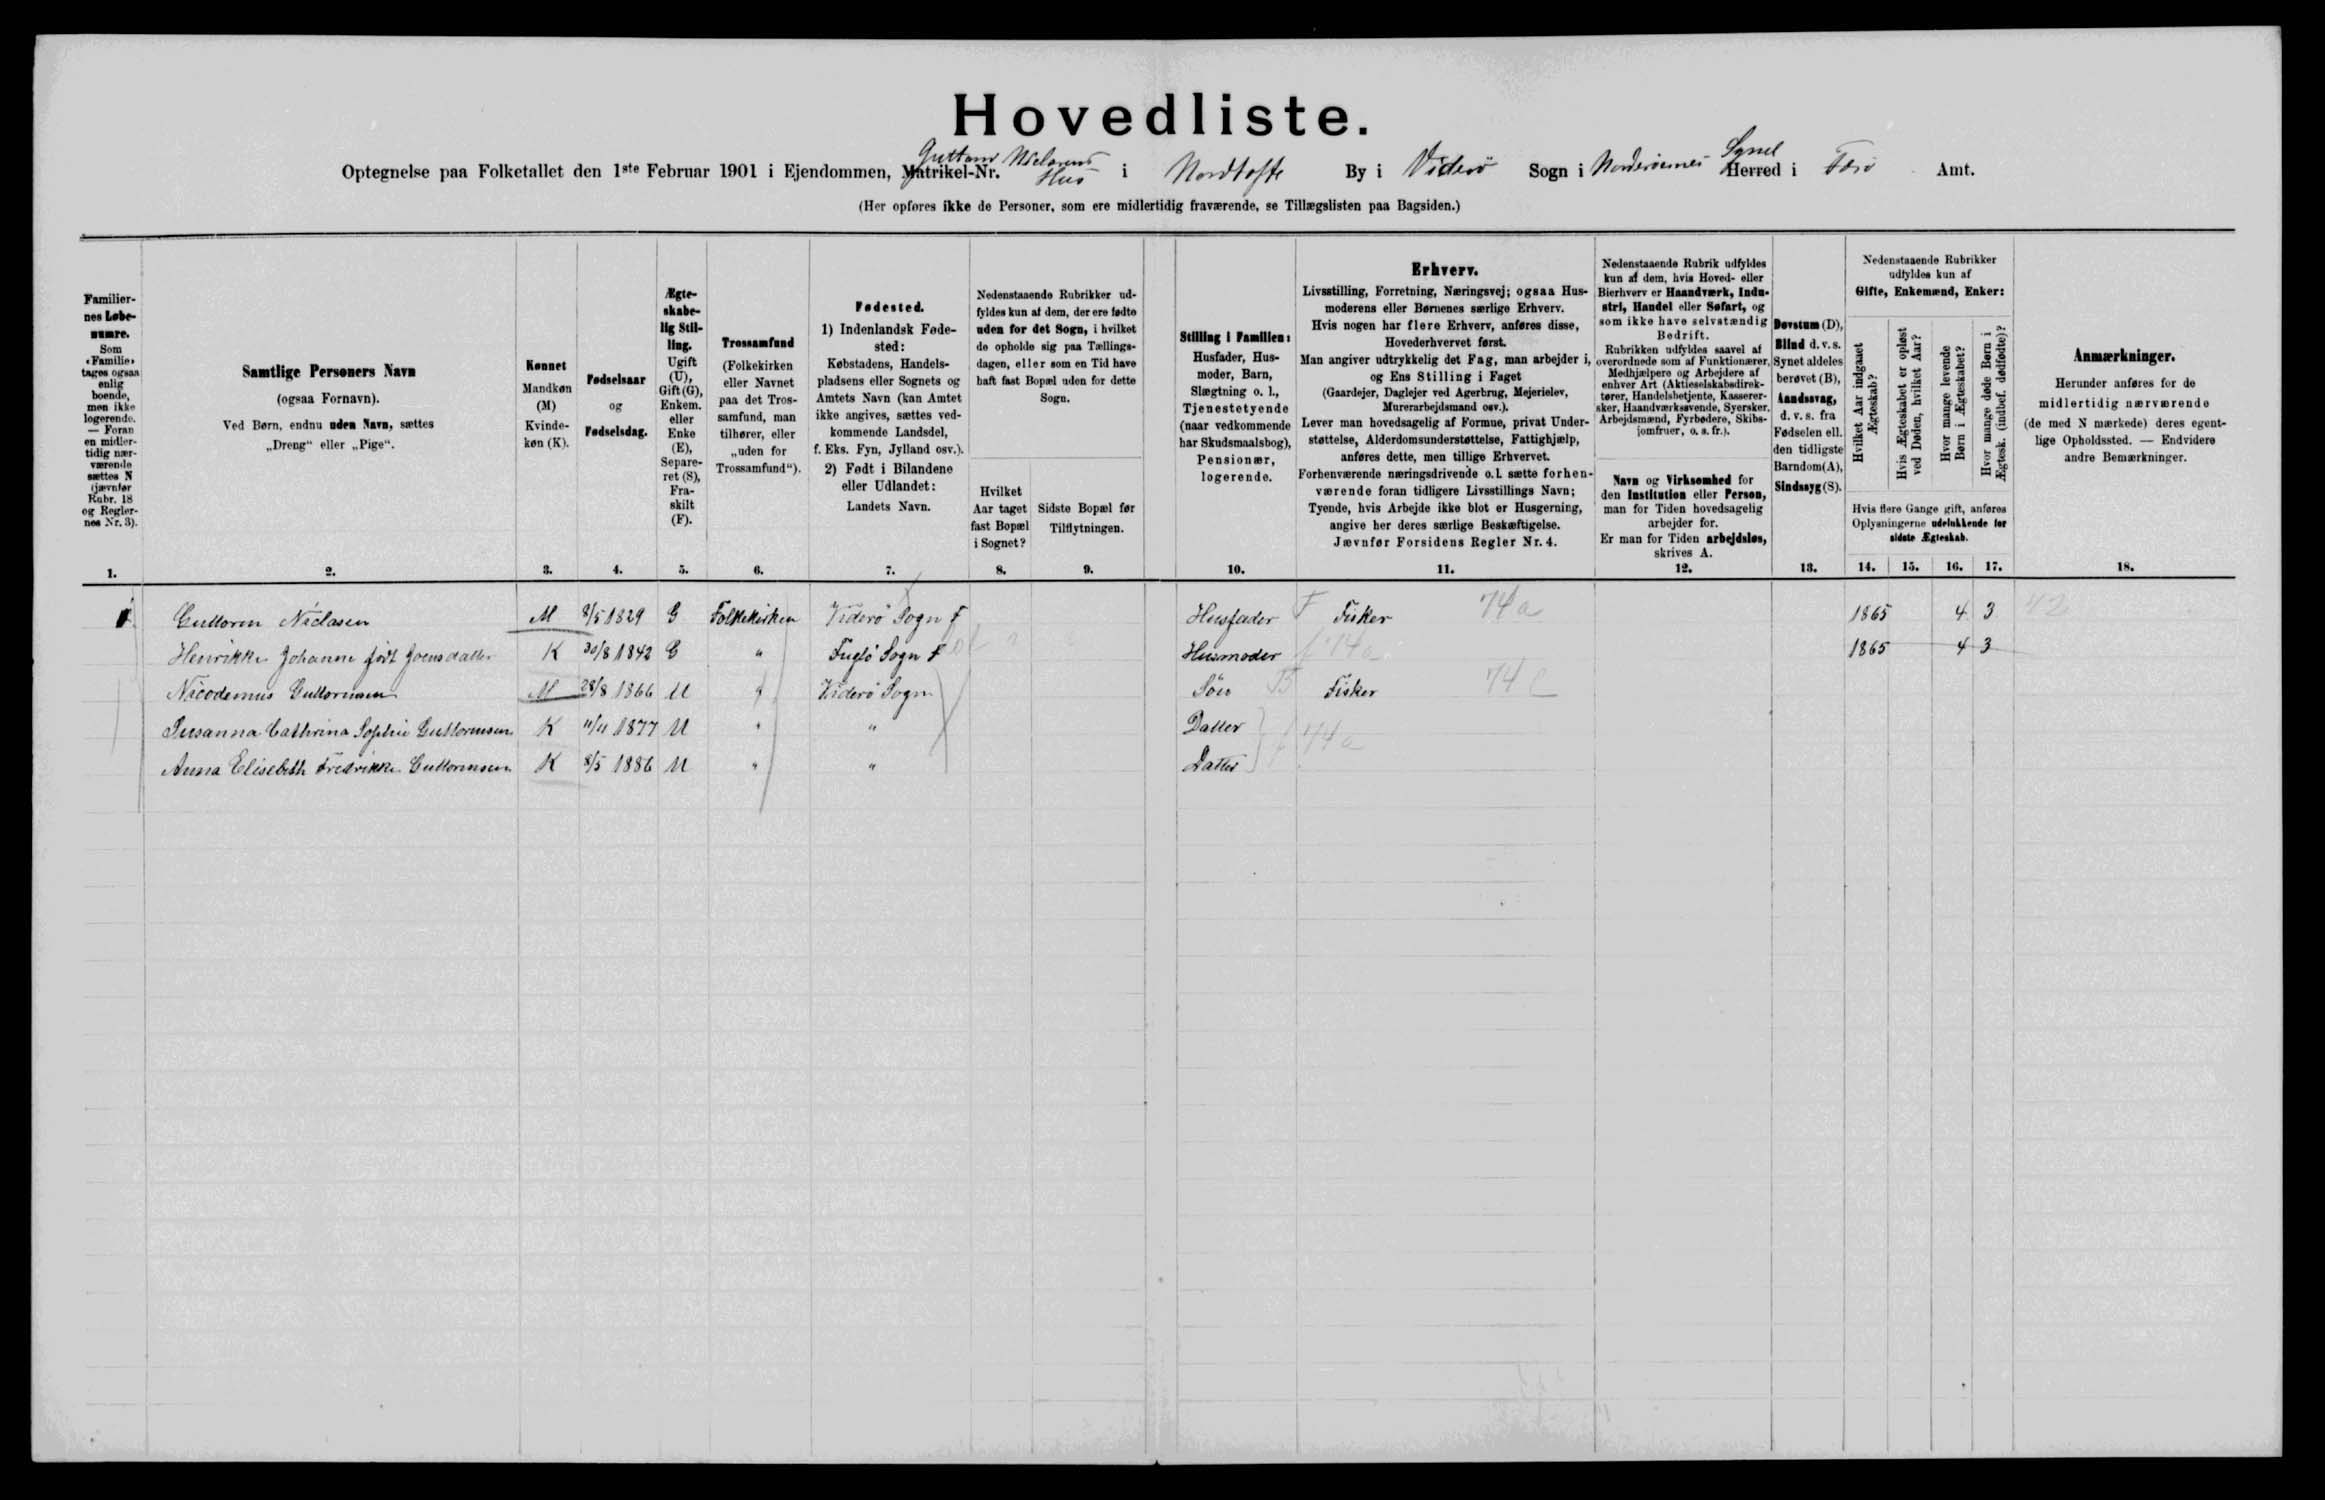 Hovedliste.
Optegnelse paa Folketallet den 1ste Februar 1901 i Ejendommen, Matrikel-Nr. Guttorm Niclasens Hus i Nordtofte By i Viderö Sogn i Norderöernes Syssel Herred i Færö Amt.
(Her opføres ikke de Personer, som ere midlertidig fraværende, se Tillægslisten paa Bagsiden.)
Familiernes Løbenumre.
Som «Familie» tages ogsaa enlig boende, men ikke logerende. — Foran en midlertidig nærværende sættes N (jævnfør Rubr. 18 og Reglernes Nr. 3).
Samtlige Personers Navn
(ogsaa Fornavn).
Ved Børn, endnu uden Navn, sættes
„Dreng“ eller „Pige“.
Kønnet
Mandkøn (M)
Kvindekøn (K).
Fødselsaar
og
Fødselsdag.
Ægteskabelig Stilling.
Ugift (U), Gift (G), Enkem. eller Enke (E), Separeret (S), Fraskilt (F).
Trossamfund
(Folkekirken eller Navnet paa det Trossamfund, man tilhører, eller „uden for Trossamfund“).
Fødested.
1) Indenlandsk Fødested:
Købstadens, Handelspladsens eller Sognets og Amtets Navn (kan Amtet ikke angives, sættes vedkommende Landsdel, f. Eks. Fyn, Jylland osv.).
2) Født i Bilandene eller Udlandet:
Landets Navn.
Nedenstaaende Rubrikker udfyldes kun af dem, der ere fødte uden for det Sogn, i hvilket de opholde sig paa Tællingsdagen, eller som en Tid have haft fast Bopæl uden for dette Sogn.
Hvilket Aar taget fast Bopæl i Sognet?
Sidste Bopæl før Tilflytningen.
Stilling i Familien:
Husfader, Husmoder, Barn, Slægtning o. l., Tjenestetyende (naar vedkommende har Skudsmaalsbog), Pensionær, logerende.
Erhverv.
Livsstilling, Forretning, Næringsvej; ogsaa Husmoderens eller Børnenes særlige Erhverv.
Hvis nogen har flere Erhverv, anføres disse, Hovederhvervet først.
Man angiver udtrykkelig det Fag, man arbejder i, og Ens Stilling i Faget
(Gaardejer, Daglejer ved Agerbrug, Mejerielev, Murerarbejdsmand osv.).
Lever man hovedsagelig af Formue, privat Understøttelse, Alderdomsunderstøttelse, Fattighjælp, anføres dette, men tillige Erhvervet.
Forhenværende næringsdrivende o.l. sætte forhenværende foran tidligere Livsstillings Navn;
Tyende, hvis Arbejde ikke blot er Husgerning, angive her deres særlige Beskæftigelse.
Jævnfør Forsidens Regler Nr. 4.
Nedenstaaende Rubrik udfyldes kun af dem, hvis Hoved- eller Bierhverv er Haandværk, Industri, Handel eller Søfart, og som ikke have selvstændig Bedrift.
Rubrikken udfyldes saavel af overordnede som af Funktionærer, Medhjælpere og Arbejdere af enhver Art (Aktieselskabsdirektører, Handelsbetjente, Kasserersker, Haandværkssvende, Syersker, Arbejdsmænd, Fyrbødere, Skibsjomfruer, o. s. fr.).
Navn og Virksomhed for den Institution eller Person, man for Tiden hovedsagelig arbejder for.
Er man for Tiden arbejdsløs, skrives A.
Døvstum (D), Blind d. v. s. Synet aldeles berøvet (B), Aandssvag, d. v. s. fra Fødselen ell. den tidligste Barndom (A), Sindssyg (S).
Nedenstaaende Rubrikker udfyldes kun af Gifte, Enkemænd, Enker:
Hvilket Aar indgaaet Ægteskab?
Hvis Ægteskabet er opløst ved Døden, hvilket Aar?
Hvor mange levende Børn i Ægteskabet?
Hvor mange døde Børn i Ægtesk. (indbef. dødfødte)?
Hvis flere Gange gift, anføres Oplysningerne udelukkende for sidste Ægteskab.
Anmærkninger.
Herunder anføres for de midlertidig nærværende (de med N mærkede) deres egentlige Opholdssted. — Endvidere andre Bemærkninger.
1. 2. 3. 4. 5. 6. 7. 8. 9. 10. 11. 12. 13. 14. 15. 16. 17. 18.
1 Guttorm Niclasen M 8/5 1829 G Folkekirken Viderö Sogn F Husfader F Fisker 74a 1865 4 3
Henrikke Johanne født Joensdatter K 30/8 1842 G " Fuglö Sogn F Husmoder f 74a 1865 4 3
Nicodemus Guttormsen M 28/8 1866 U " Viderö Sogn Sön B Fisker 74
Susanna Cathrina Sophie Guttormsen K 11/11 1877 U " " Datter
Anna Elisebeth Fredrikke Guttormsen K 8/5 1886 U " " Datter